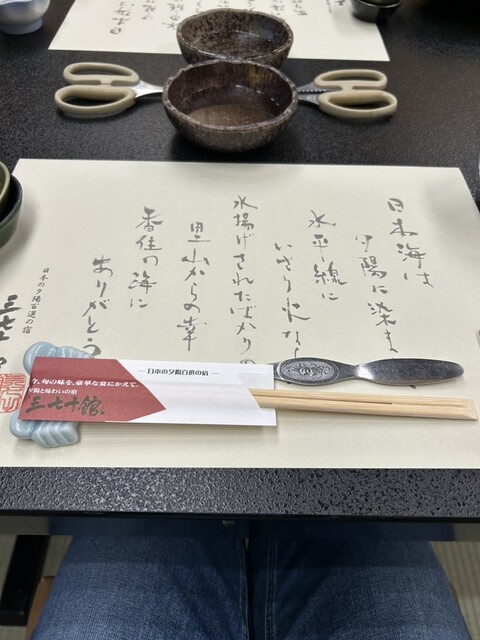 日本海は
夕陽に染ま
水平線に
いさり火な
水揚げされたばかりの
里山からの幸
香住の海に
ありがとう
日本の夕陽百選の宿
三七十
― 日本の夕陽百選の宿 ―
今、旬の味を、豪華な宴にかえて。
夕陽と味わいの宿
三七十館